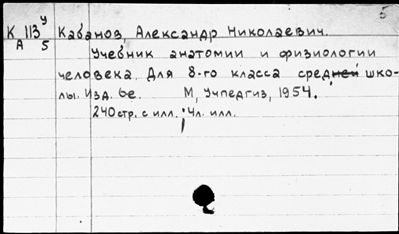 5
К 113 у Кабанов, Александр Николаевич.
А 5
Учебник анатомии и физиологии
человека. Для 8-го класса средней шко-
лы. Изд. 6е. М, Учпедгиз, 1954.
240стр. с илл. 4л. илл.